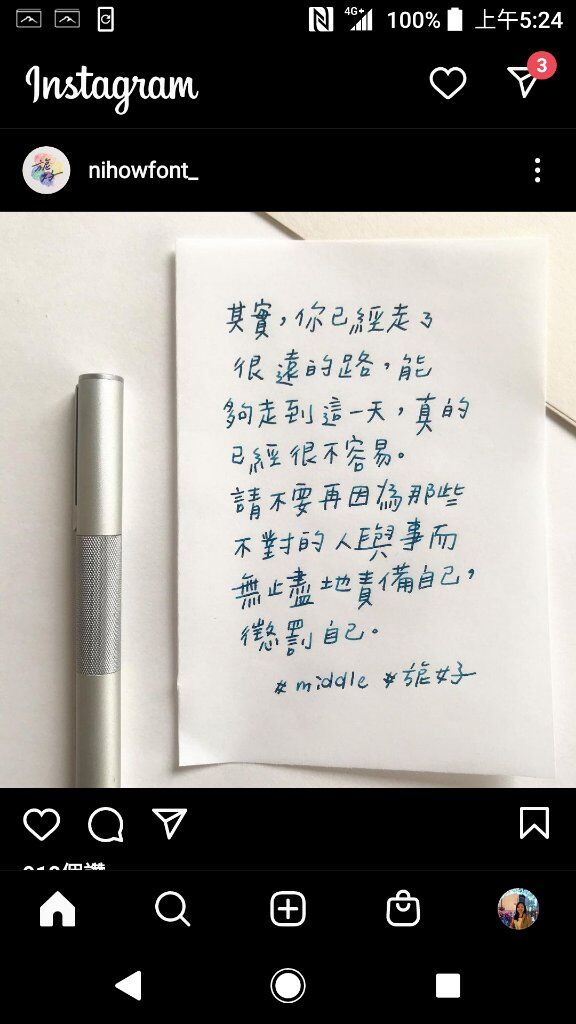 4G+ 100% 上午5:24
Instagram 3
nihowfont_
其實,你已經走了
很遠的路,能
夠走到這一天,真的
已經很不容易。
請不要再因為那些
不對的人與事而
無止盡地責備自己,
懲罰自己。
#middle #旎好